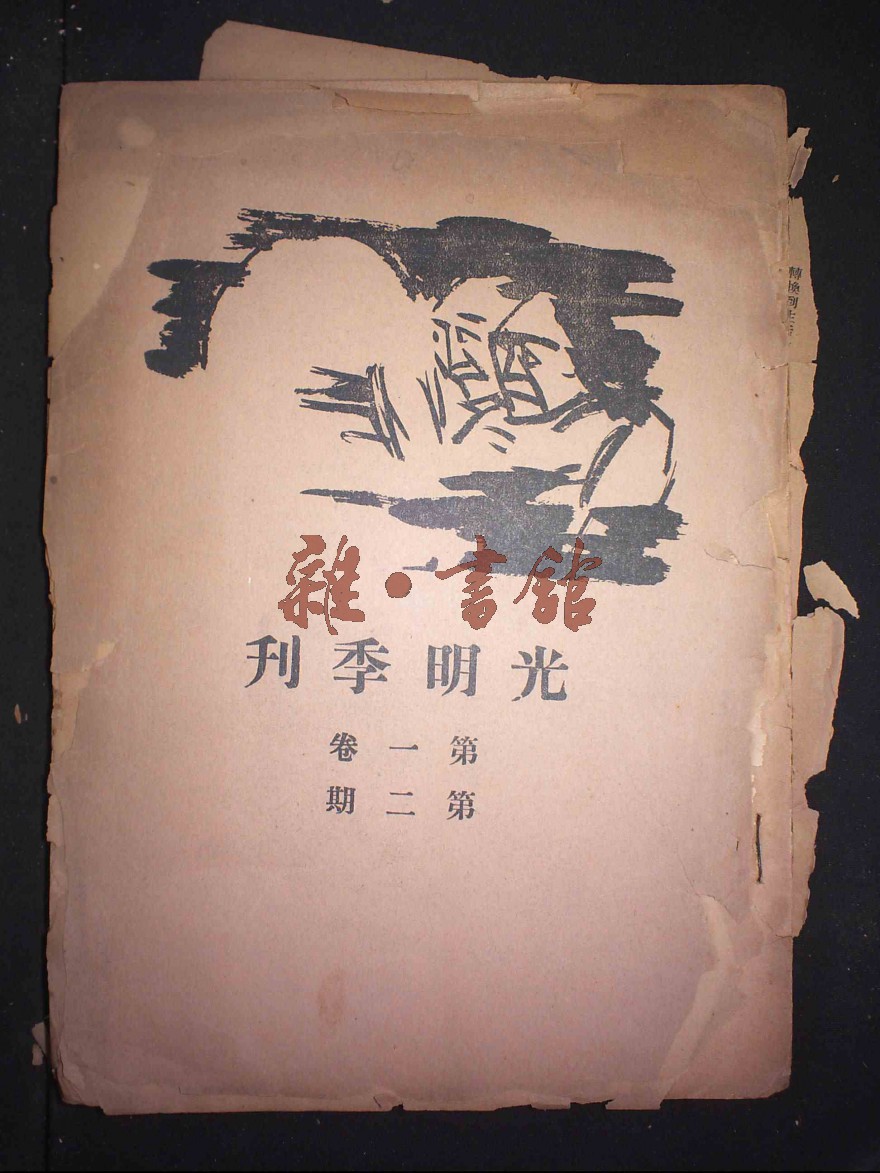 雜·書館
光明季刊
第一卷
第二期
轉換到